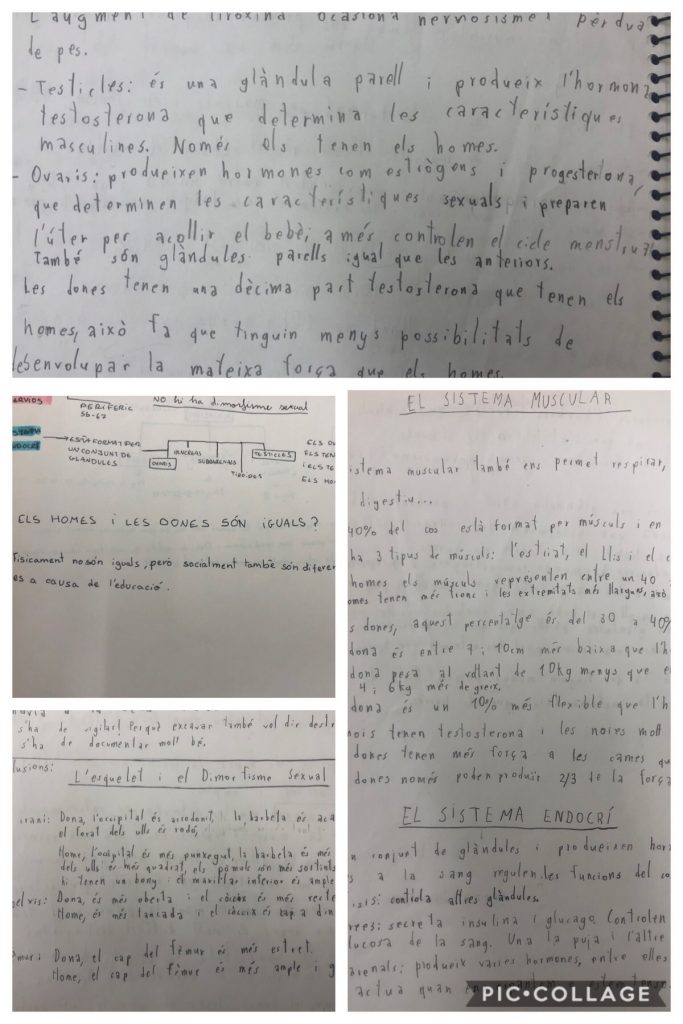 L'augment de tiroxina ocasiona nervosisme i pèrdua
de pes.
- Testicles: és una glàndula parell i produeix l'hormona
testosterona que determina les característiques
masculines. Només els tenen els homes.
- Ovaris: produeixen hormones com estrògens i progesterona,
que determinen les característiques sexuals i preparen
l'úter per acollir el bebè, a més controlen el cicle menstrual
També són glàndules parells igual que les anteriors.
Les dones tenen una dècima part testosterona que tenen els
homes, això fa que tinguin menys possibilitats de
desenvolupar la mateixa força que els homes.
PERIFÈRIC
56-67
NO hi ha dimorfisme sexual
ESTÀ FORMAT PER
UN CONJUNT DE
GLÀNDULES
OVARIS
PÀNCREES
SUBRARENALS
TIROIDES
TESTICLES
ELS HOMES I LES DONES SÓN IGUALS?
Físicament no són iguals, però socialment també són diferen
es a causa de l'educació.
s'ha de vigilar! Perquè excavar també vol dir destr
s'ha de documentar molt bé.
lusions:
L'esquelet i el Dimorfisme Sexual
crani: Dona, l'occipital és arrodonit, la barbeta és aca
el forat dels ulls és rodó,
Home, l'occipital és més punxegut, la barbeta és més
dels ulls és més quadrat, els pòmuls són més sortints
hi tenen un bony i el maxil·lar inferior és ample
pelvis: Dona, és més oberta i el còccix és més recte
Home, és més tancada i el còccix és cap a din
fèmur: Dona, el cap del fèmur és més estret.
Home, el cap del fèmur és més ample i g
EL SISTEMA MUSCULAR
istema muscular també ens permet respirar,
digestiu...
40% del cos està format per músculs i en
ha 3 tipus de músculs: l'estriat, el llis i el c
homes els músculs representen entre un 40
omes tenen més tronc i les extremitats més llargues, això
s dones, aquest percentatge és del 30 a 40%
dona és entre 7 i 10cm més baixa que l'h
dona pesa al voltant de 10kg menys que e
4 i 6kg més de greix.
dona és un 10% més flexible que l'h
nois tenen testosterona i les noies molt
dones tenen més força a les cames que
dones només poden produir 2/3 de la força
EL SISTEMA ENDOCRÍ
n conjunt de glàndules i produeixen hor
s a la sang regulen les funcions del co
isis: controla altres glàndules.
rees: secreta insulina i glucagó. Controlen
lucosa de la sang. Una la puja i l'altre
arenals: produeix varies hormones, entre elles
actua quan
PIC•COLLAGE